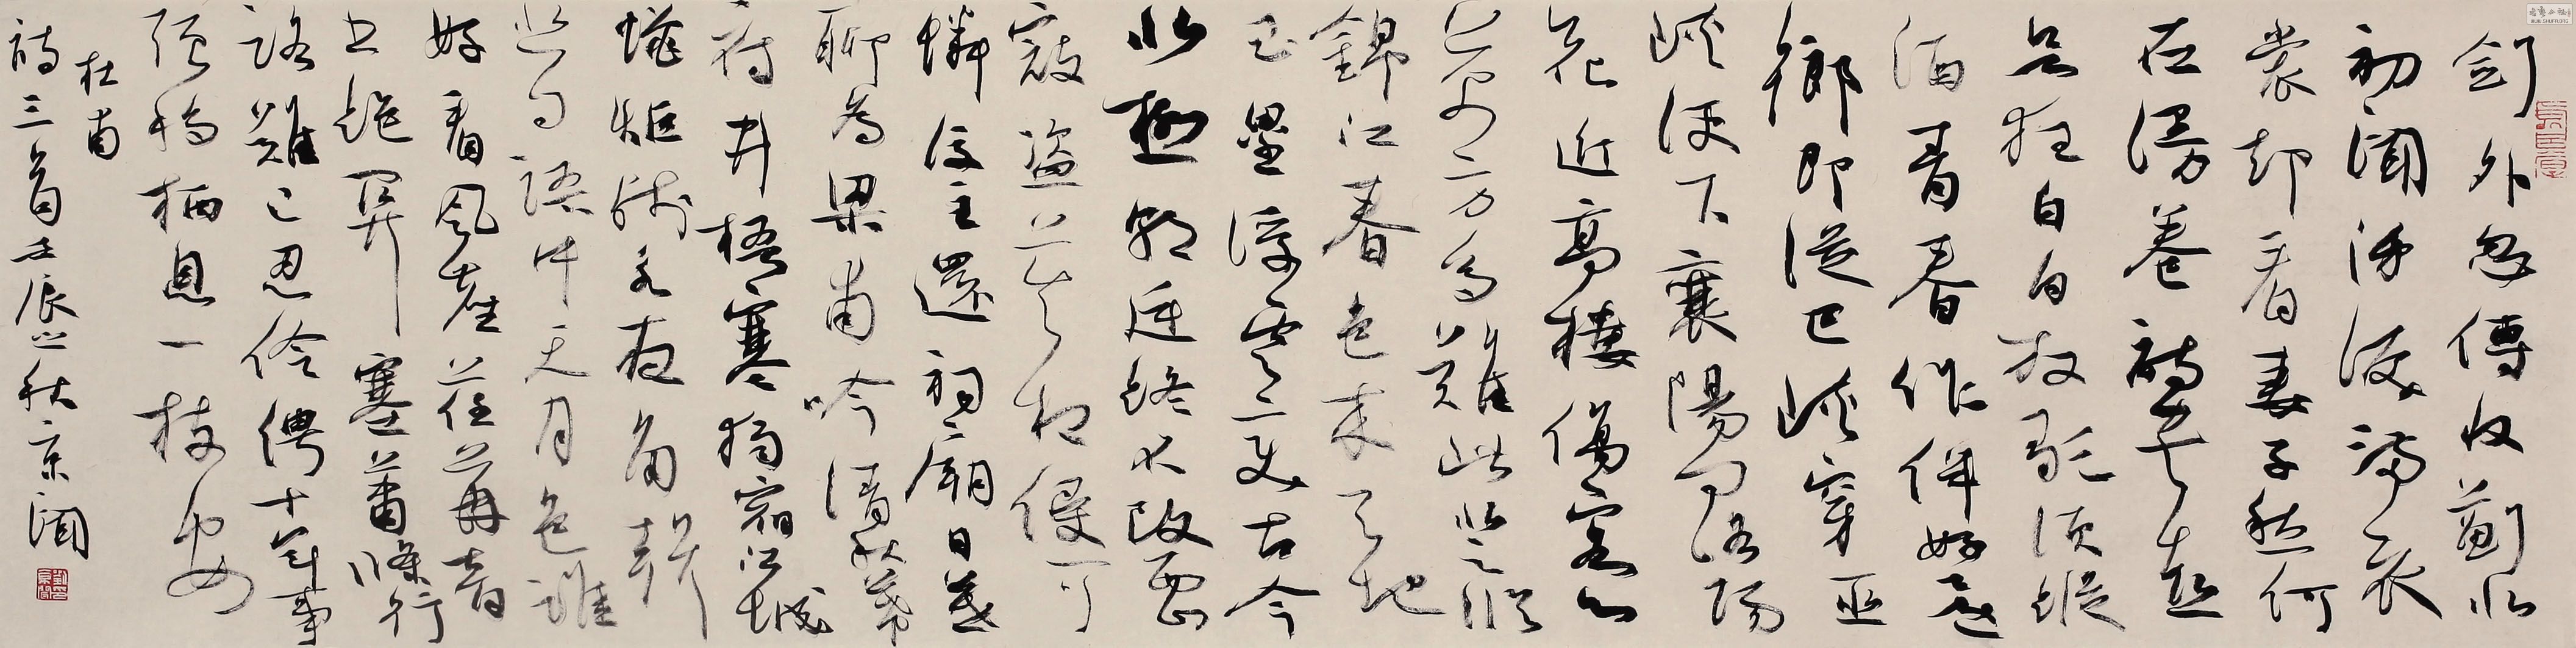 劍外忽傳收薊北
初聞涕淚滿衣
裳却看妻子愁何
在漫卷詩書喜
欲狂白日放歌須縱
酒青春作伴好還
鄉即從巴峽穿巫
峽便下襄陽向洛陽
花近高樓傷客心
萬方多難此登臨
錦江春色來天地
玉壘浮雲變古今
北極朝廷終不改西
寇盜莫相侵可
憐後主還祠廟日暮
聊為梁甫吟清秋幕
府井梧寒獨宿江城
蠟炬殘永夜角聲
悲自語中天月色誰
好看風塵荏苒音
書絕關塞蕭條行
路難已忍伶俜十年事
強移栖息一枝安
杜甫
詩三首壬辰之秋京聞